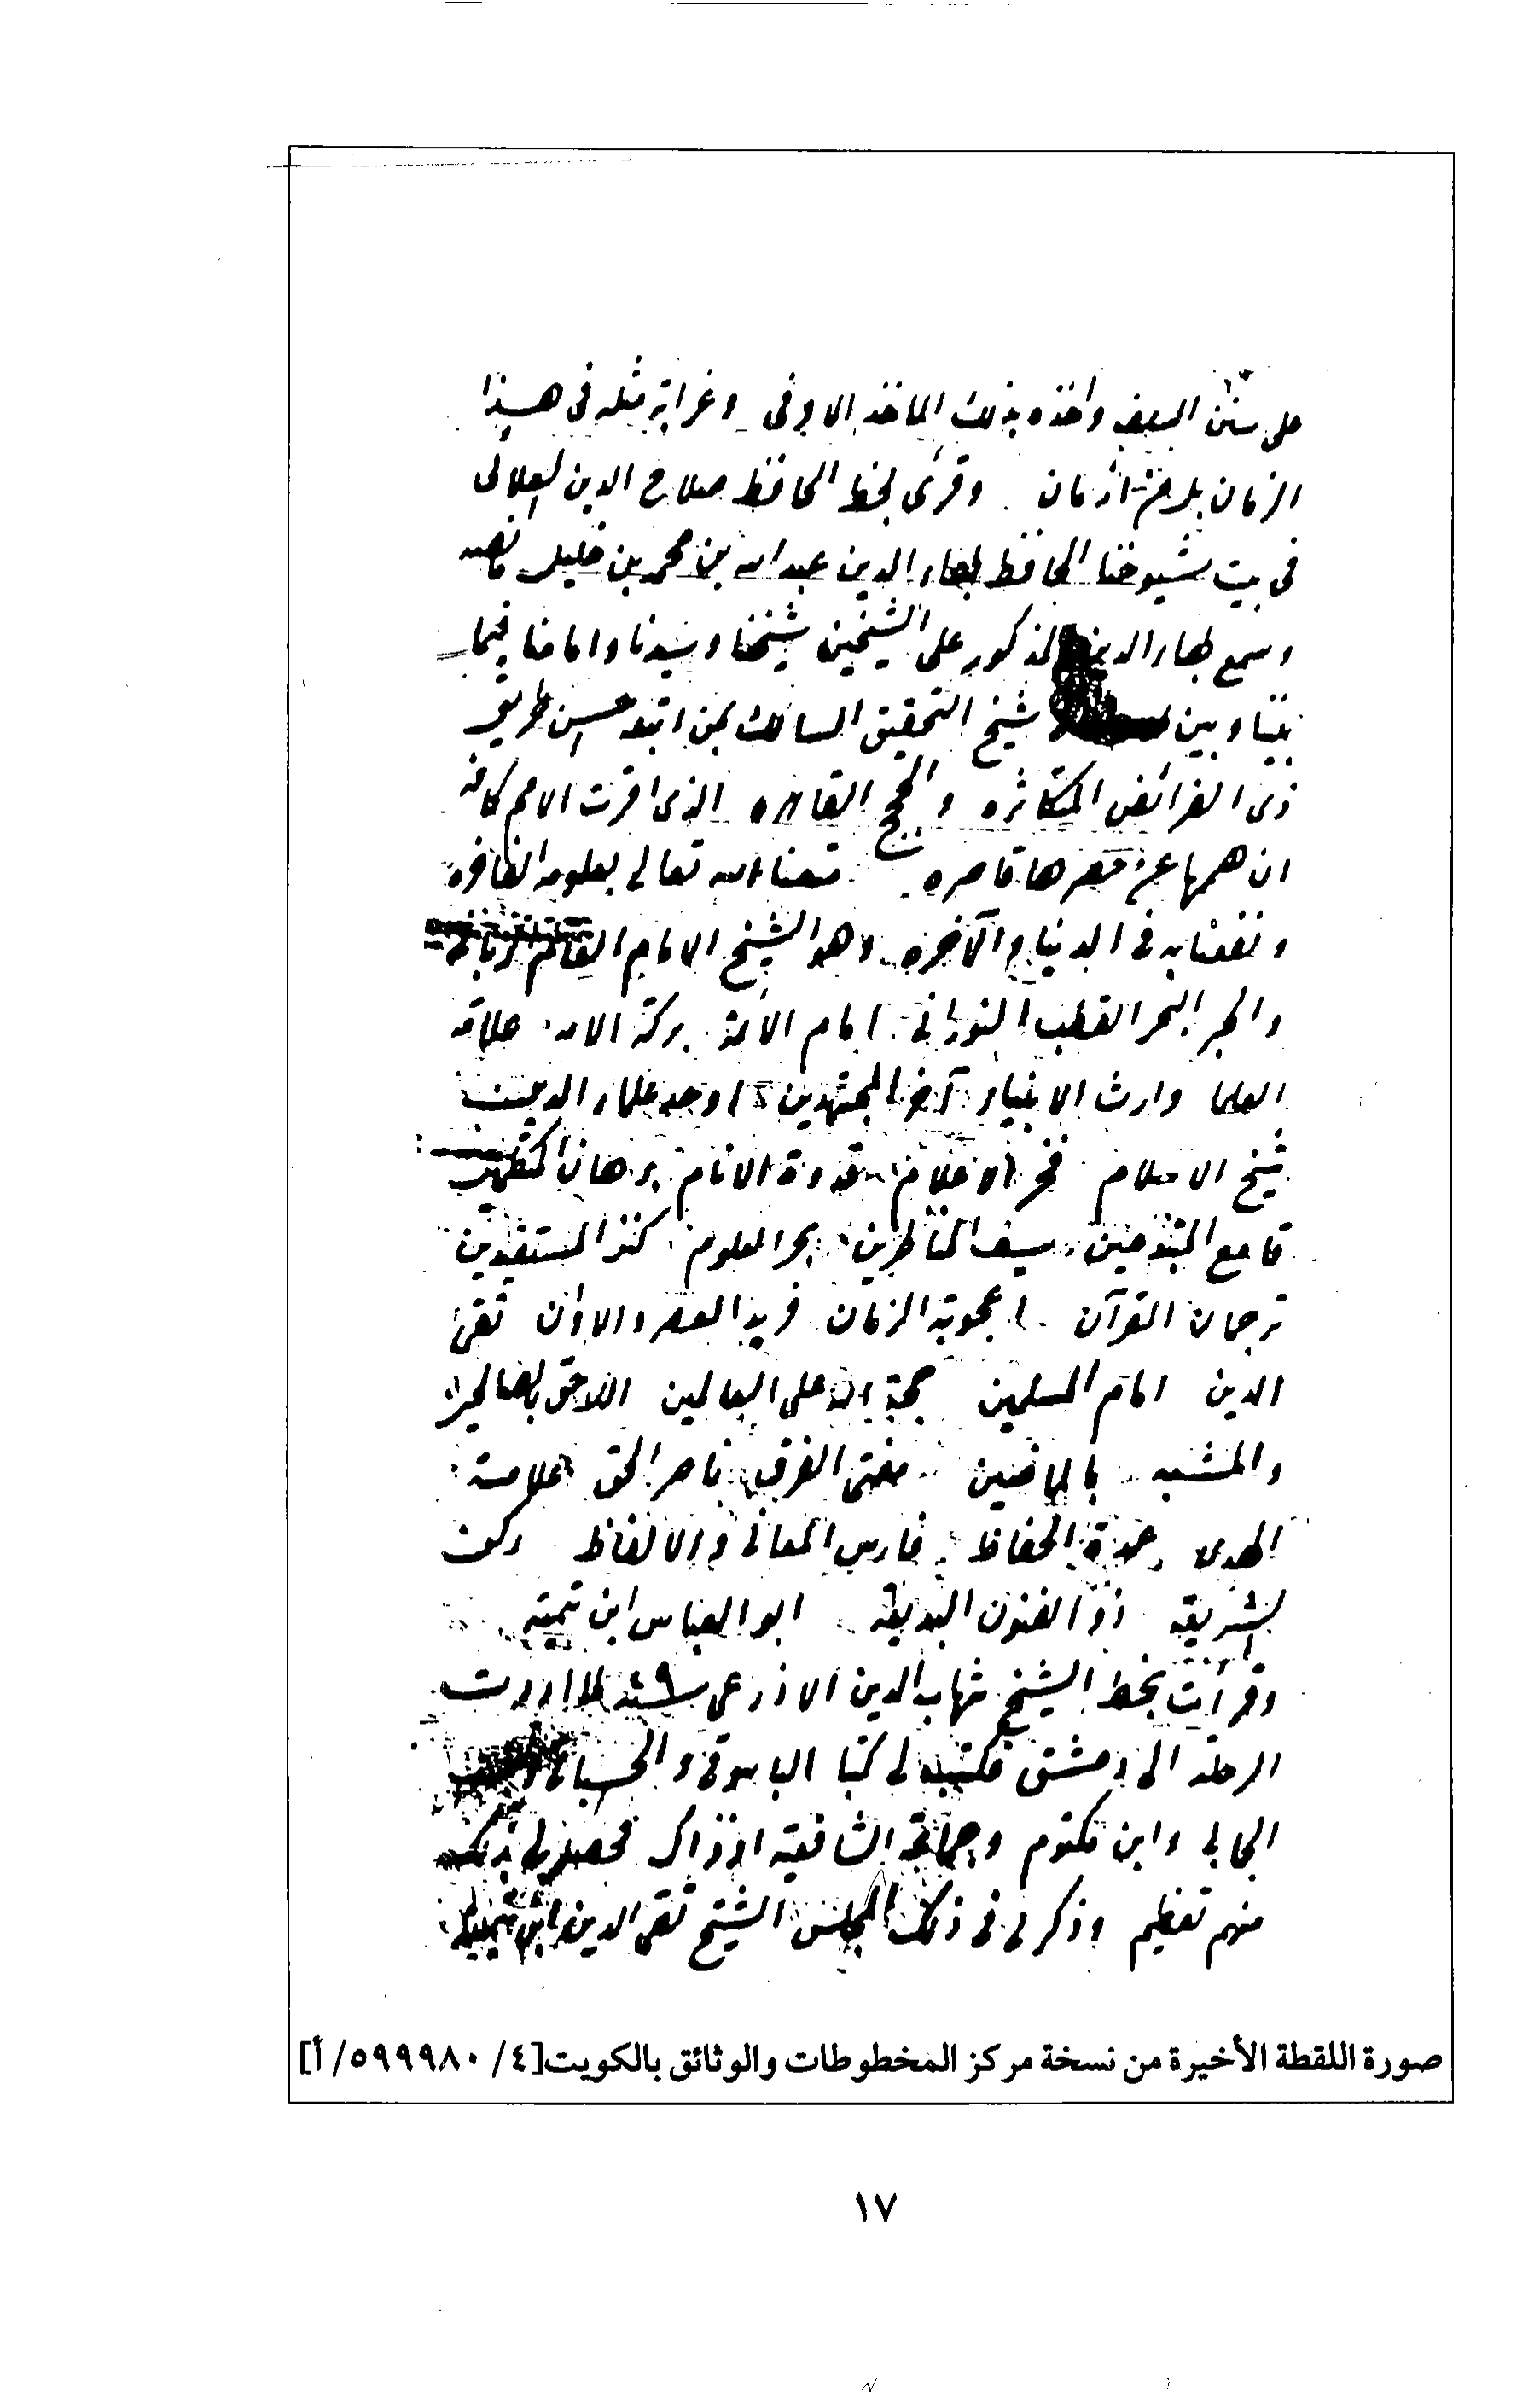 على سنن السلف واخذه بذلك الماخذ الاوفى وغرابة مثله فى هذا
الزمان بل من ازمان وقرئ بخط الحافظ صلاح الدين العلائى
فى بيت شيوخنا الحافظ بهاء الدين عبد الله بن محمد بن خليل ما نصه
وسمع بهاء الدين المذكور على الشيخين شيخنا وسيدنا وامامنا فيما
بيننا وبين شيخ التحقيق السالك بمن اتبعه احسن طريق
ذى الفرائض المتكاثره والحجج القاهره الذى اقرت الامم كافة
ان هممها عن حصرها قاصره متعنا الله تعالى بعلومه الفاخره
ونفعنا به فى الدنيا والآخره وهو الشيخ الامام العالم الربانى
والحبر البحر القطب النورانى امام الأئمة بركة الامه علامة
العلما وارث الانبياء آخر المجتهدين اوحد علماء الدين
شيخ الاسلام فخر الاعلام قدوة الانام برهان المتكلمين
قامع المبتدعين سيف المناظرين بحر العلوم كنز المستفيدين
ترجمان القرآن اعجوبة الزمان فريد العصر والاوان تقى
الدين امام المسلمين حجة الله على العالمين اللاحق بالصالحين
والمشبه بالماضين مفتى الفرق ناصر الحق علامة
الهدى عمدة الحفاظ فارس المعانى والالفاظ ركن
الشريعة ذو الفنون البديعة ابو العباس ابن تيمية
وقرأت بخط الشيخ شهاب الدين الاذرعى لما اردت
الرحلة الى دمشق فكتب لى كتبا الباسوفى والحسبانى
الجابى وابن مكتوم وجماعة الشافعية اذ ذاك فحصل لى بذلك
منهم تعظيم وذكر لى فى ذلك المجلس الشيخ تقى الدين ابن تيمية
صورة اللقطة الأخيرة من نسخة مركز المخطوطات والوثائق بالكويت[٤/ ٥٩٩٩٨٠/ أ]
١٧